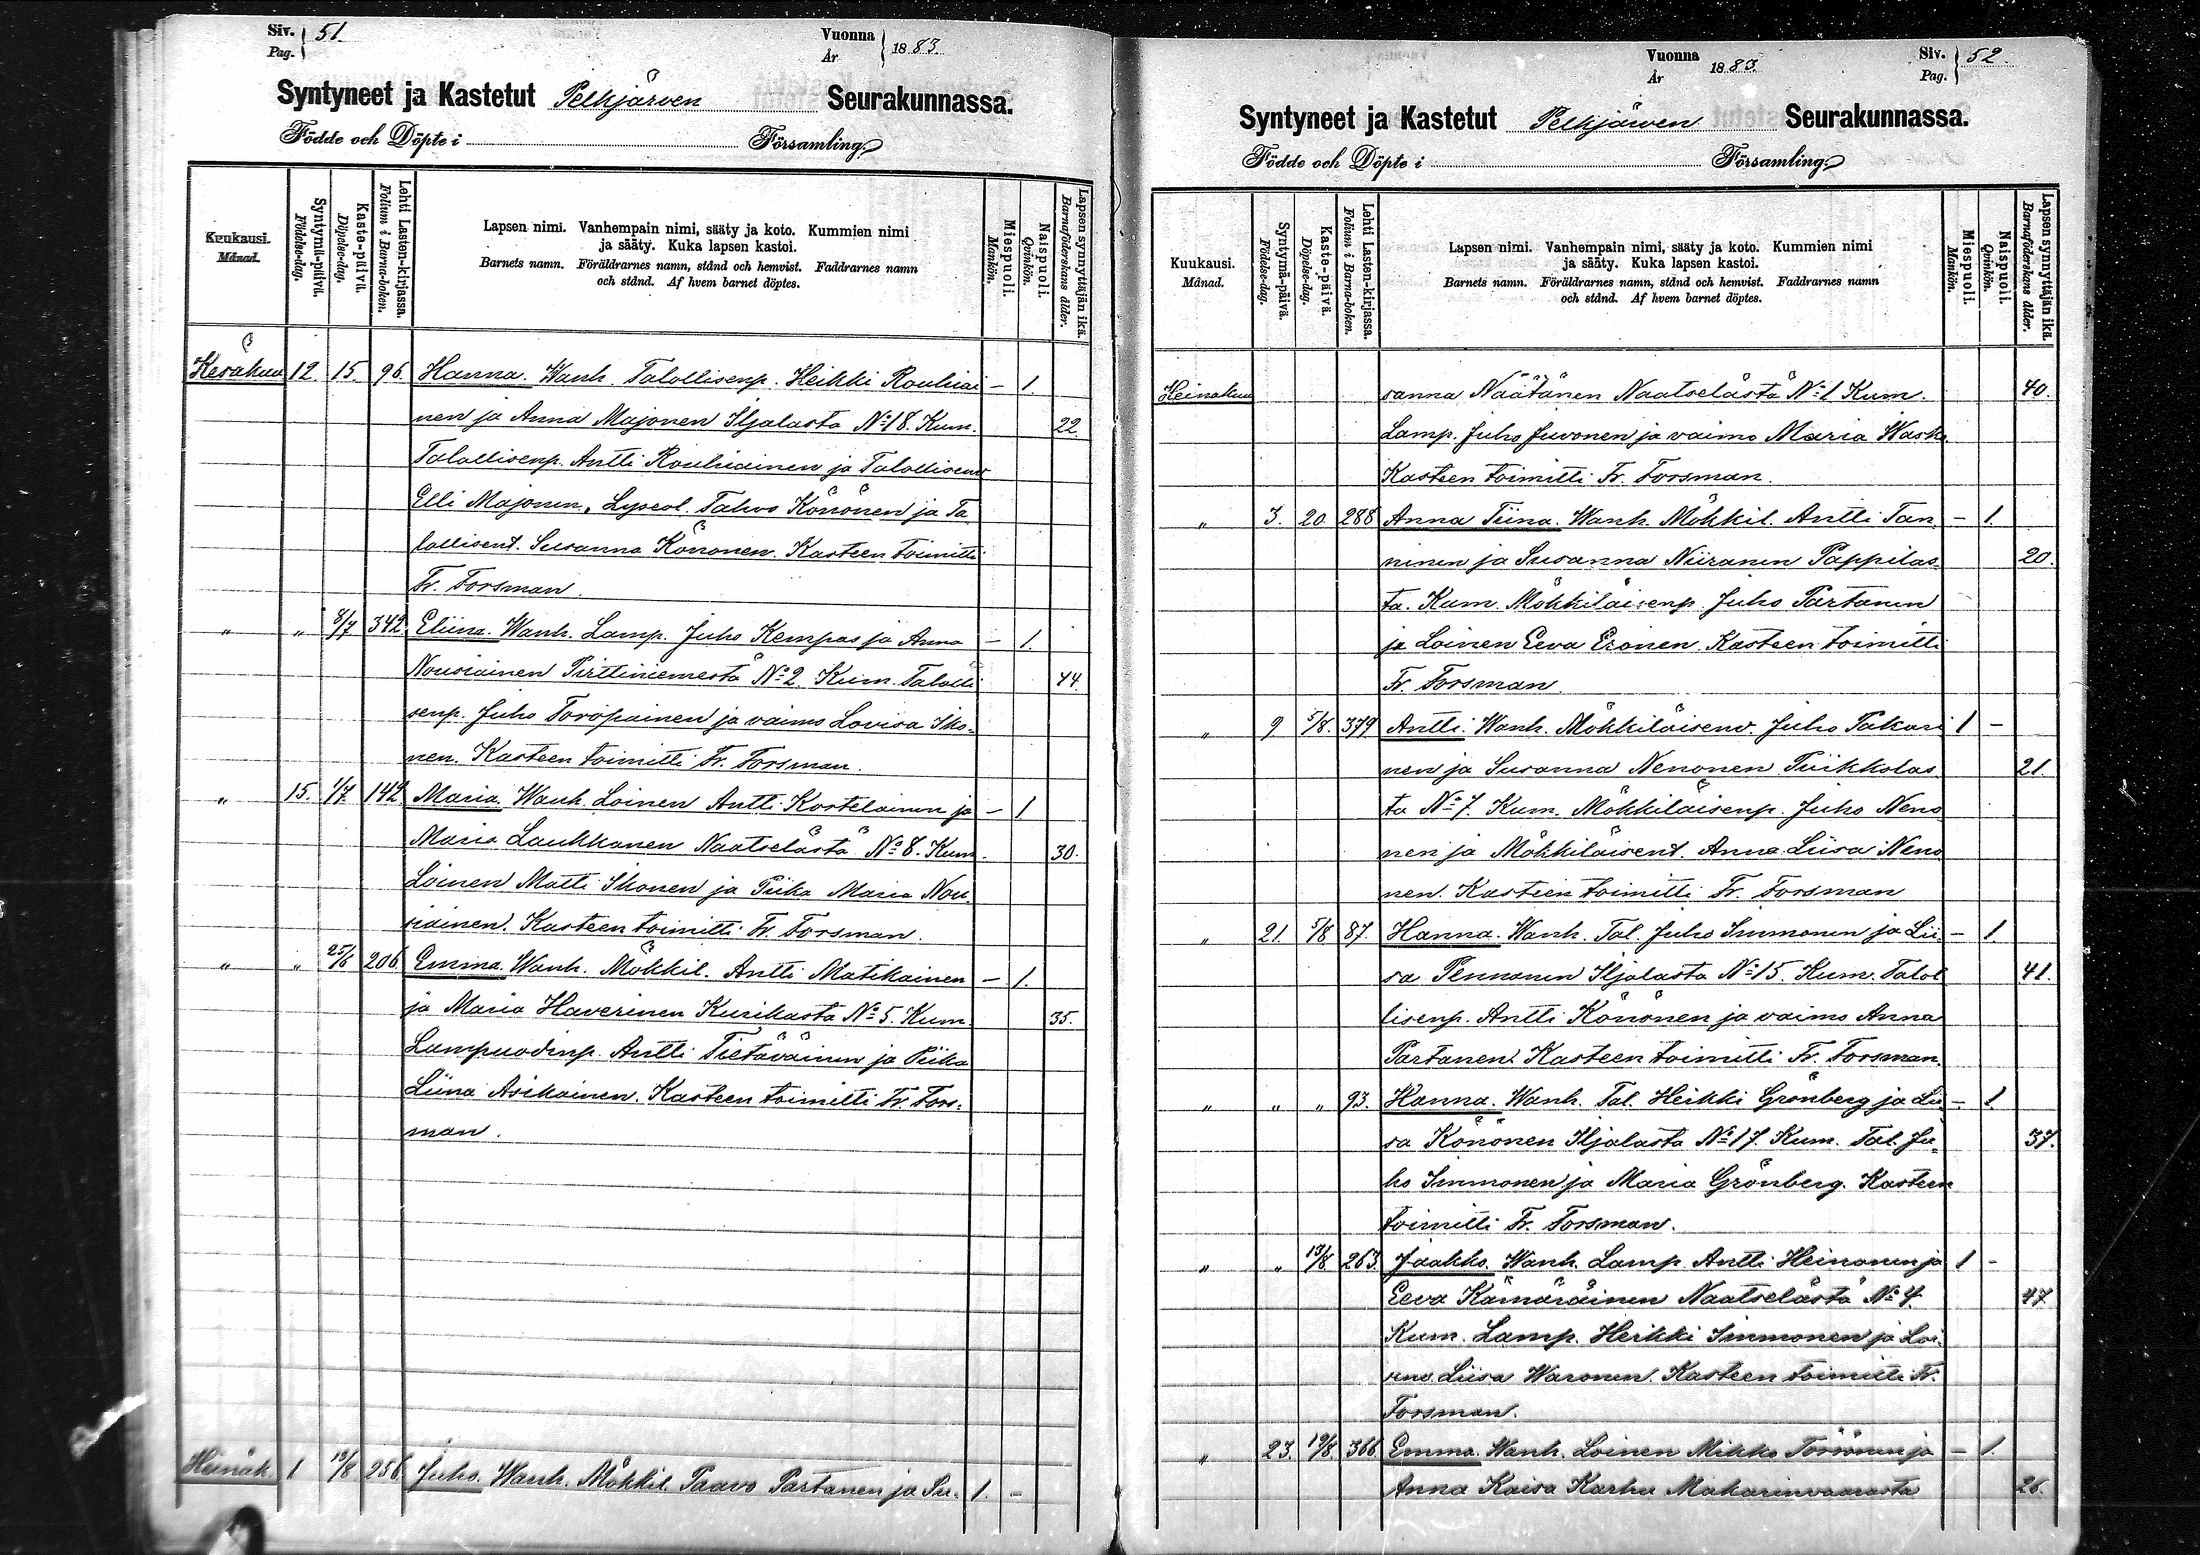 Siv. 51.
Pag.
Vuonna 1883.
År
Syntyneet ja Kastetut Pelkjärven Seurakunnassa.
Födde och Döpte i Församling.
Kuukausi.
Månad.
Syntymä-päivä.
Födelse-dag.
Kaste-päivä.
Döpelse-dag.
Lehti Lasten-kirjassa.
Folium i Barna-boken.
Lapsen nimi. Vanhempain nimi, sääty ja koto. Kummien nimi
ja sääty. Kuka lapsen kastoi.
Barnets namn. Föräldrarnes namn, stånd och hemvist. Faddrarnes namn
och stånd. Af hvem barnet döptes.
Miespuoli.
Mankön.
Naispuoli.
Qvinkön.
Lapsen synnyttäjän ikä.
Barnaföderskans ålder.
Kesäkuu 12. 15. 96. Hanna. Wanh. Talollisenp. Heikki Rouhiai- – 1.
nen ja Anna Majonen Iljalasta No 18. Kum. 22.
Talollisenp. Antti Rouhiainen ja Talollisenv.
Elli Majonen, Lyseol. Tahvo Könönen ja Ta-
lollisent. Susanna Könönen. Kasteen toimitti
Fr. Forsman.
" " 8/7 342. Eliina. Wanh. Lamp. Juho Kempas ja Anna – 1.
Nousiainen Pirttiniemestä No 2. Kum. Talolli 44.
senp. Juho Toropainen ja vaimo Lovisa Iko-
nen. Kasteen toimitti Fr. Forsman.
" 15. 1/7 142 Maria. Wanh. Loinen Antti Kostelainen ja – 1
Maria Laukkanen Naatselästä No 8. Kum. 30.
Loinen Matti Ikonen ja Piika Maria Nou-
siainen. Kasteen toimitti Fr. Forsman.
" " 25/6 206. Emma. Wanh. Mökkil. Antti Matikainen – 1.
ja Maria Haverinen Kurikasta No 5. Kum. 35.
Lampuodinp. Antti Tietäväinen ja Piika
Liina Asikainen. Kasteen toimitti Fr. Fors-
man.
Heinäk. 1 13/8 256. Juho. Wanh. Mökkil. Paavo Partanen ja Su- 1. –
Vuonna 1883.
År
Siv. 52.
Pag.
Syntyneet ja Kastetut Pelkjärven Seurakunnassa.
Födde och Döpte i Församling.
Kuukausi.
Månad.
Syntymä-päivä.
Födelse-dag.
Kaste-päivä.
Döpelse-dag.
Lehti Lasten-kirjassa.
Folium i Barna-boken.
Lapsen nimi. Vanhempain nimi, sääty ja koto. Kummien nimi
ja sääty. Kuka lapsen kastoi.
Barnets namn. Föräldrarnes namn, stånd och hemvist. Faddrarnes namn
och stånd. Af hvem barnet döptes.
Miespuoli.
Mankön.
Naispuoli.
Qvinkön.
Lapsen synnyttäjän ikä.
Barnaföderskans ålder.
Heinäkuu sanna Näätänen Naatselästä No 1 Kum. 40.
Lamp. Juho Juvonen ja vaimo Maria Wask.
Kasteen toimitti Fr. Forsman.
" 3. 20. 288 Anna Tiina. Wanh. Mökkil. Antti Tan – 1.
ninen ja Susanna Niiranen Pappilas- 20.
ta. Kum. Mökkiläisenp. Juho Partanen
ja Loinen Eeva Eronen. Kasteen toimitti
Fr. Forsman.
" 9 5/8. 379 Antti. Wanh. Mökkiläisenv. Juho Pakari 1 –
nen ja Susanna Nenonen Tiikkolas 21.
ta No 7. Kum. Mökkiläisenp. Juho Neno
nen ja Mökkiläisent. Anna Liisa Neno
nen. Kasteen toimitti Fr. Forsman
" 21. 5/8 87. Hanna. Wanh. Tal. Juho Immonen ja Lii- – 1.
sa Pennanen Iljalasta No 15. Kum. Talol 41.
lisenp. Antti Könönen ja vaimo Anna
Partanen. Kasteen toimitti Fr. Forsman.
" " " 93. Hanna. Wanh. Tal. Heikki Grönberg ja Lii – 1.
sa Könönen Iljalasta No 17. Kum. Tal. Ju- 37.
ho Immonen ja Maria Grönberg. Kasteen
toimitti Fr. Forsman.
" " 13/8 263. Jaakko. Wanh. Lamp. Antti Heinonen ja 1 –
Eeva Kämäräinen Naatselästä No 4. 47
Kum. Lamp. Heikki Immonen ja Loi-
senv. Liisa Waronen. Kasteen toimitti Fr.
Forsman.
" 23. 19/8. 366 Emma. Wanh. Loinen Mikko Törrönen ja – 1.
Anna Kaisa Karhu Makarinvaarasta 26.